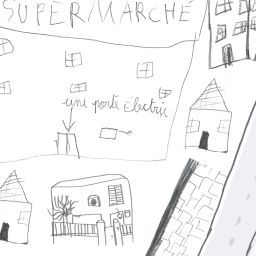 SUPERMARCHÉ
une porte électric